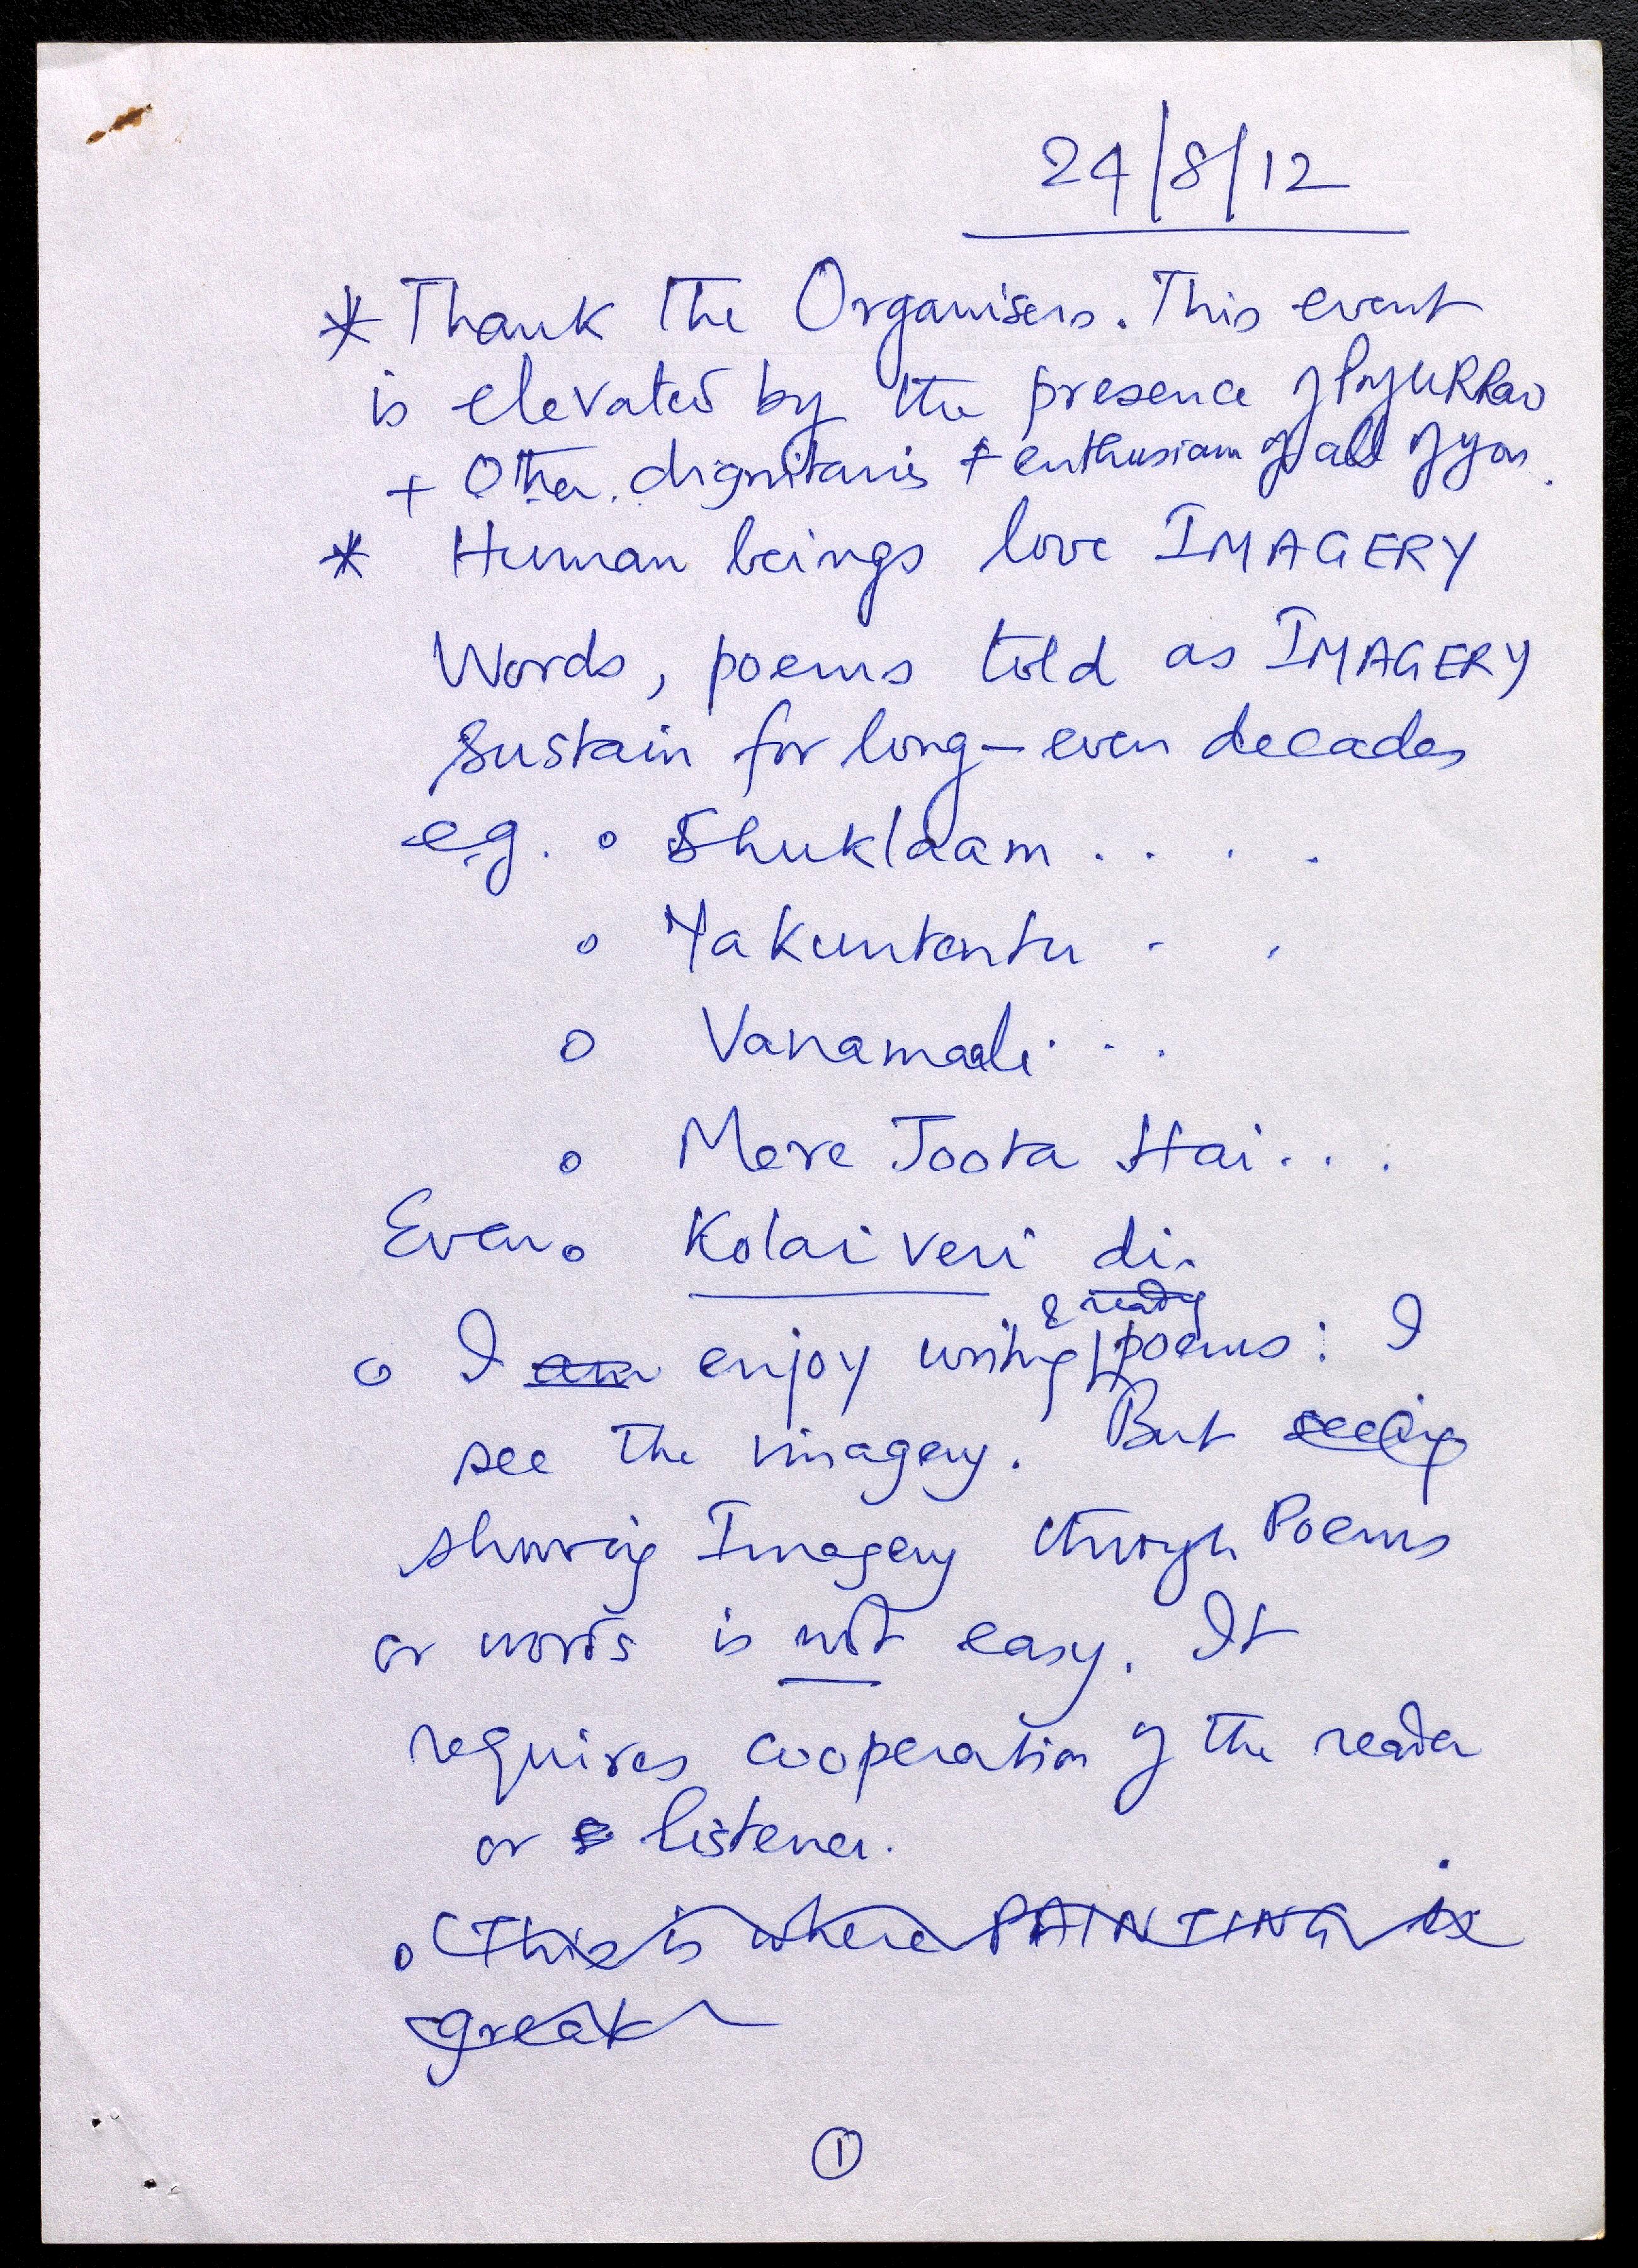 24/8/12
* Thank the Organisers. This event
is elevated by the presence of Prof U R Rao
+ Other dignitaries + enthusiasm of all of you.
* Human beings love IMAGERY
Words, poems told as IMAGERY
sustain for long - even decades
e.g. o Shuklaam . . . .
o Yakuntentu . .
o Vanamaali . . .
o Mera Joota Hai . . .
Even o Kolai veri di.
& ready
o I am enjoy writing poems: I
see the imagery. But seeing
showing Imagery through Poems
or words is not easy. It
requires cooperation of the reader
or listener.
o This is where PAINTING is
great
1